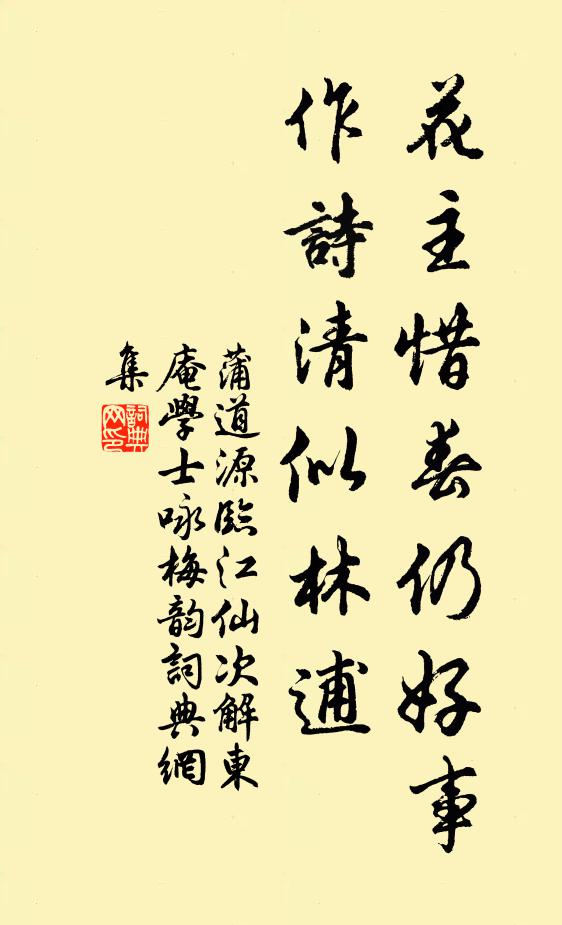 花主惜春仍好事
作詩清似林逋
蒲道源臨江仙次解東
庵學士咏梅韵詞典網
集
詞典
网印